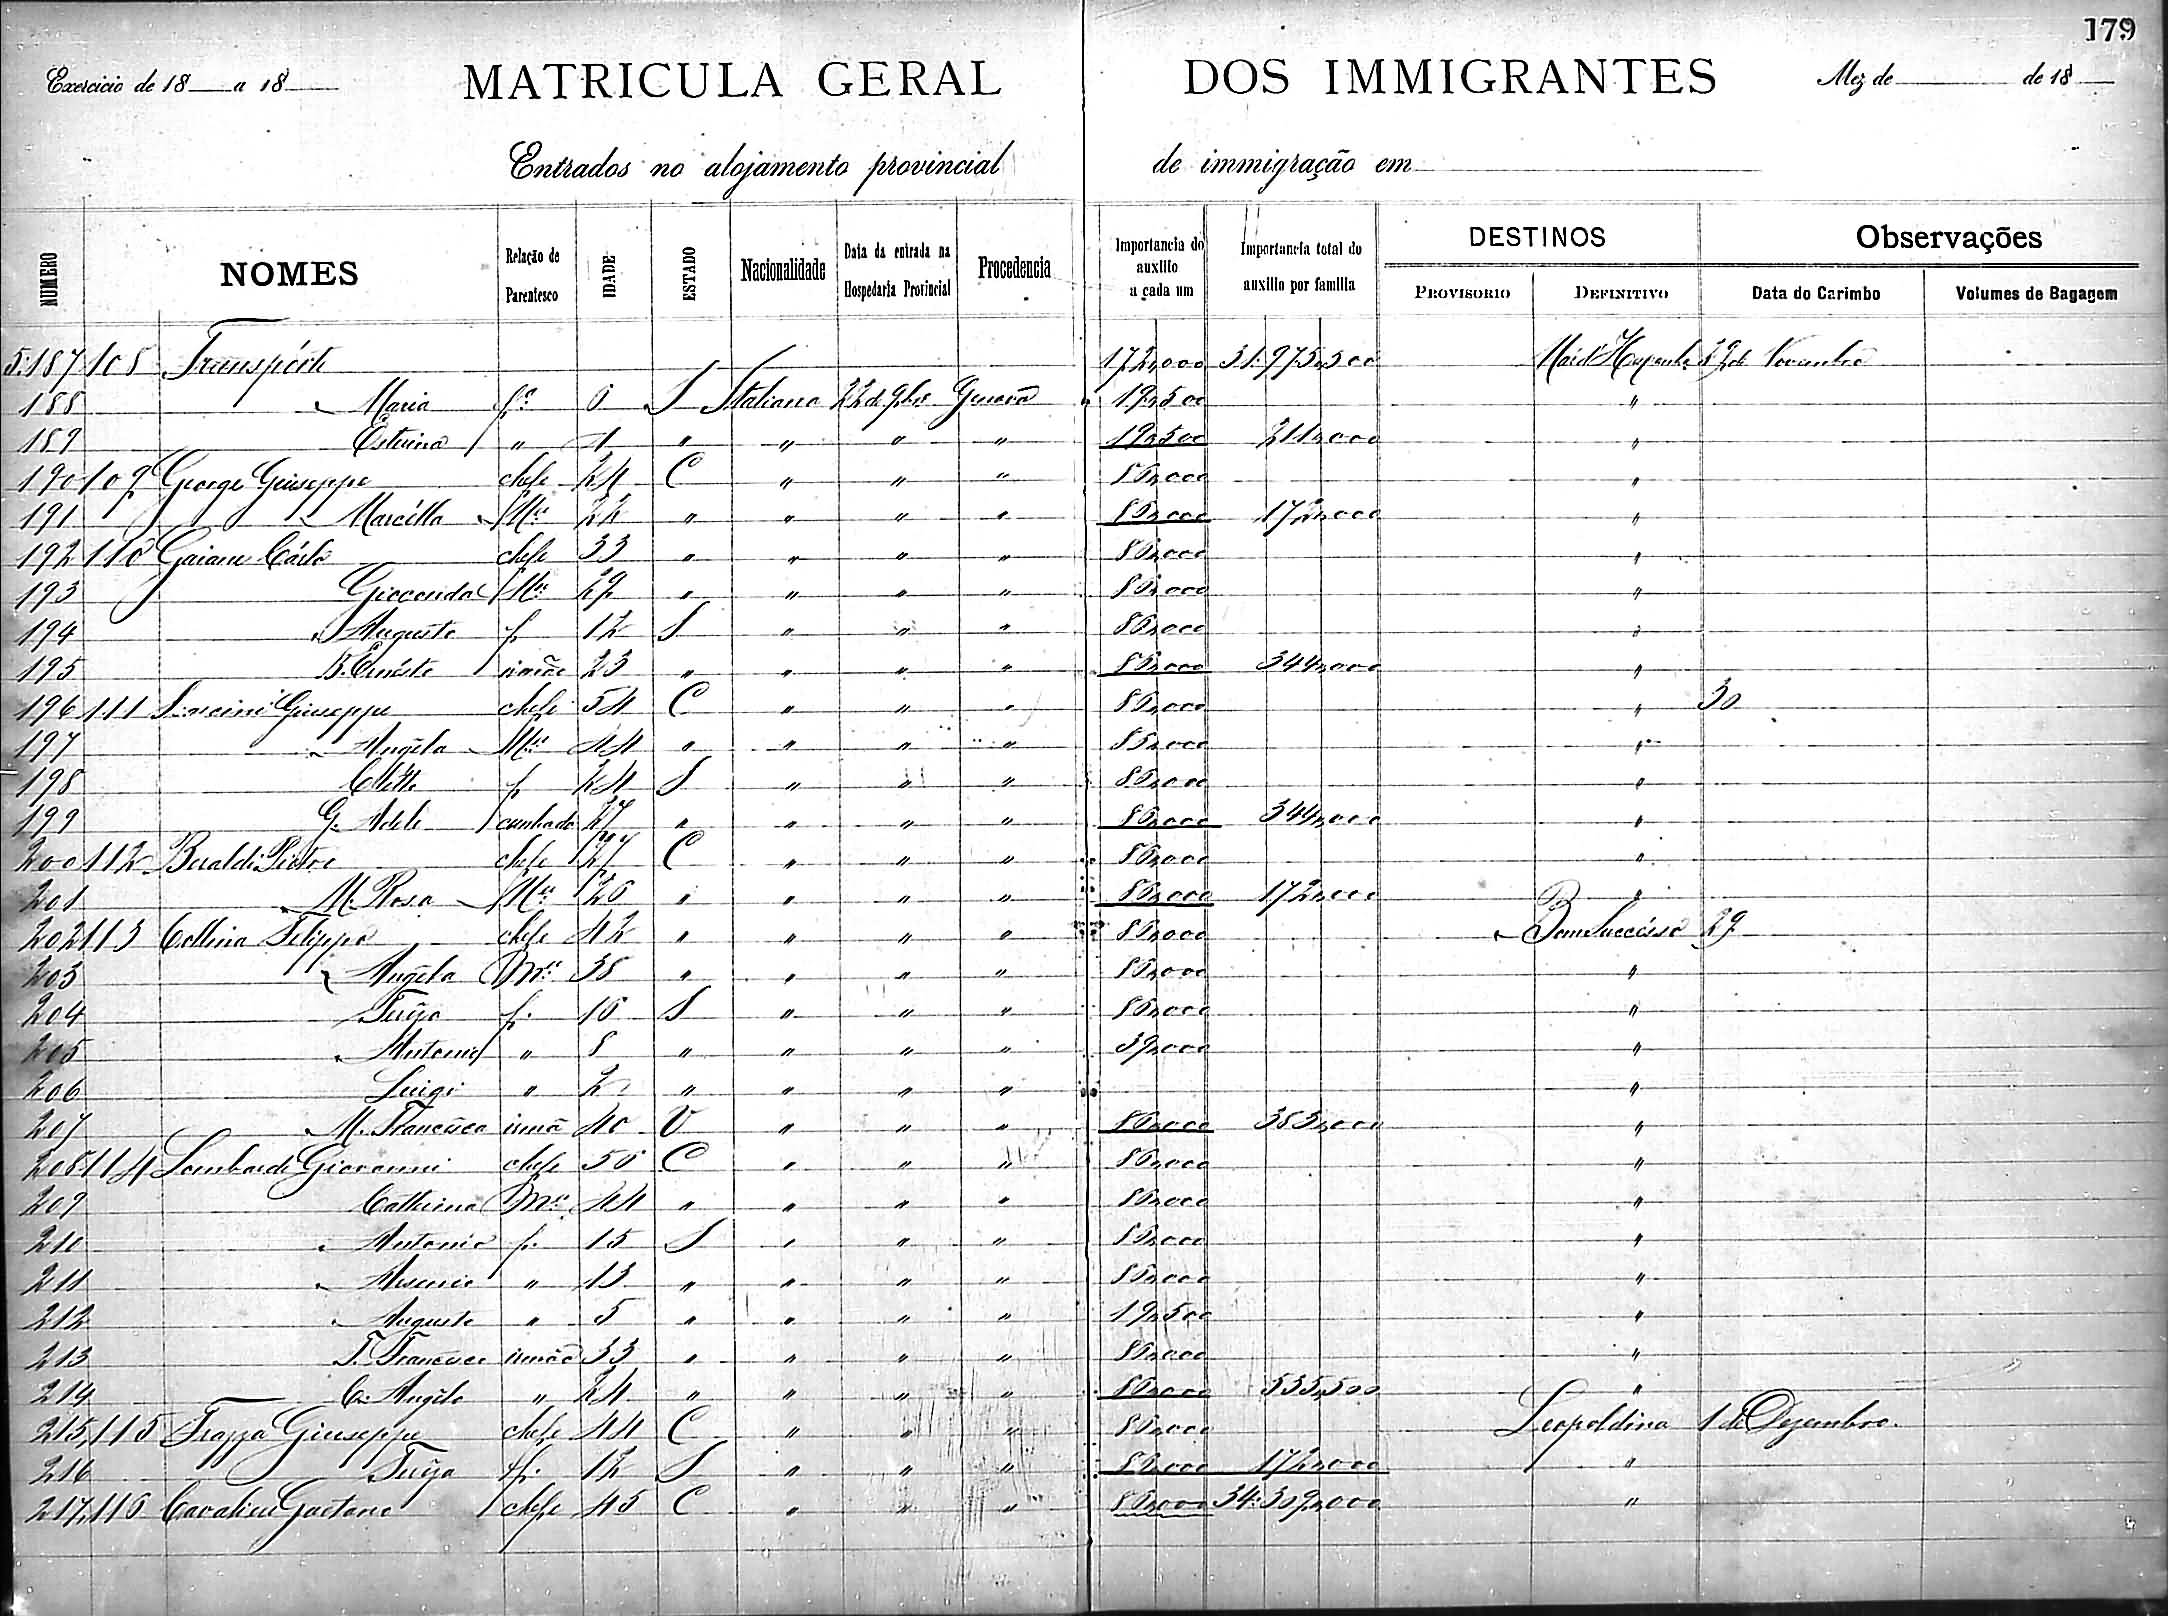 179
Exercicio de 18 a 18 MATRICULA GERAL DOS IMMIGRANTES Mez de de 18
Entrados no alojamento provincial de immigração em
NUMERO NOMES Relação de Parentesco IDADE ESTADO Nacionalidade Data da entrada na Hospedaria Provincial Procedencia Importancia do auxilio a cada um Importancia total do auxilio por familia DESTINOS Observações
PROVISORIO DEFINITIVO Data do Carimbo Volumes de Bagagem
5.187 108 Transpórte 172,000 31:975,500 29 de Novembro
188 " Maria fª 6 S Italiana 22 de 9bro Genova 19,500 "
189 " 4 " " " " 19,500 211,000 "
190 109 George Giuseppe chefe 24 C " " " 86,000 "
191 " Marcélla Mer 22 " " " " 86,000 172,000 "
192 110 Carlo chefe 33 " " " " 86,000 "
193 Gioconda Mer 29 " " " " 86,000 "
194 " Augusto f 12 S " " " 86,000 "
195 B. Ernésto irmão 23 " " " " 86,000 344,000 "
196 111 Giuseppe chefe 54 C " " " 86,000 " 30
197 " Angéla Mer 44 " " " " 86,000 "
198 f 24 S " " " 86,000 "
199 G. Adele cunhada 27 " " " " 86,000 344,000 "
200 112 Beraldi Pietro chefe 27 C " " " 86,000 "
201 " M. Rosa Mer 26 " " " " 86,000 172,000 "
202 113 Collina Filippo chefe 42 " " " " 86,000 Bom Succésso 29
203 " Angéla Mer 38 " " " " 86,000 "
204 f. 16 S " " " 86,000 "
205 " Antonio " 8 " " " " 39,000 "
206 Luigi " 2 " " " " "
207 " M. Francésca irmã 40 V " " " 86,000 383,000 "
208 114 Lombardi Giovanni chefe 56 C " " " 86,000 "
209 Catterina Mer 44 " " " " 86,000 "
210 " Antonio f. 15 S " " " 86,000 "
211 " " 13 " " " " 86,000 "
212 " Augusto " 5 " " " " 19,500 "
213 T. Francésco irmão 33 " " " " 86,000 "
214 C. Angélo " 24 " " " " 86,000 535,500 "
215 115 Frazza Giuseppe chefe 44 C " " " 86,000 Leopoldina 1 de Dezembro
216 f. 12 S " " " 86,000 172,000 "
217 116 Cavalieri Gaetano chefe 45 C " " " 86,000 34:309,000 "